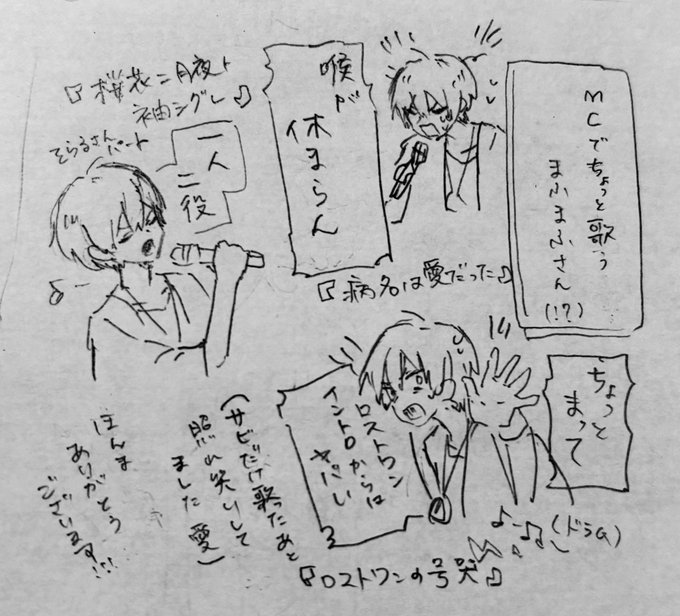 MCでちょっと歌う
まふまふさん
(!?)
喉が
休まらん
『病名は愛だった♪』
『桜花ニ月夜ト
袖シグレ♪』
そらるさん
パート
一人
二役
ちょっと
まって
ロストワン
イントロからは
ヤバい
♪ー♫(ドラム)
『ロストワンの号哭♪』
(サビだけ歌ったあと
照れ笑いして
ました 愛)
ほんま
ありがとう
ございます!!!